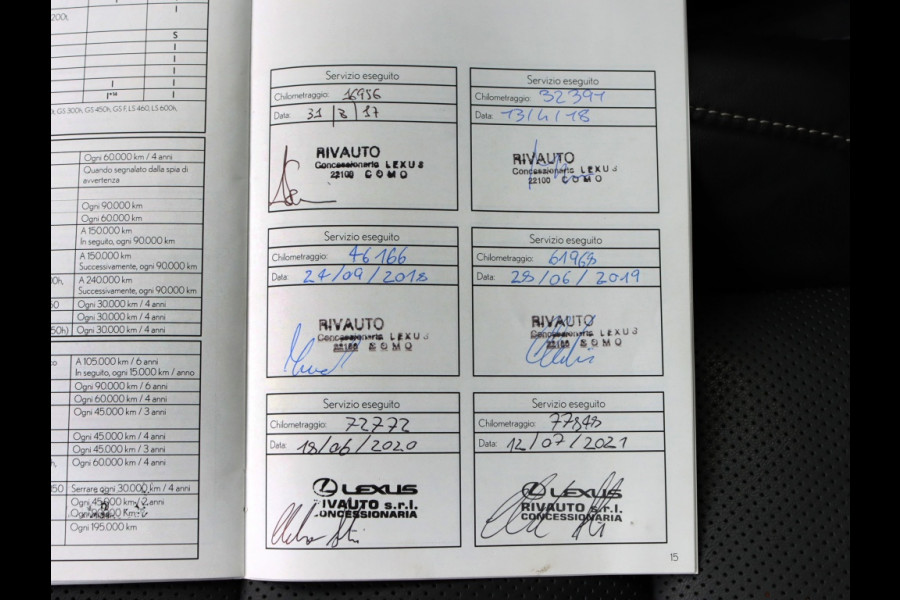 200h,
I
S
I
I
I
I
I
I*¹⁰ I
GS 300h, GS 450h, GS F, LS 460, LS 600h,
Ogni 60.000 km / 4 anni
Quando segnalato dalla spia di
avvertenza
Ogni 90.000 km
Ogni 60.000 km
A 150.000 km
In seguito, ogni 90.000 km
A 150.000 km
Successivamente, ogni 90.000 km
A 240.000 km
Successivamente, ogni 90.000 km
Ogni 30.000 km / 4 anni
Ogni 30.000 km / 4 anni
Ogni 30.000 km / 4 anni
A 105.000 km / 6 anni
In seguito, ogni 15.000 km / anno
Ogni 90.000 km / 6 anni
Ogni 60.000 km / 4 anni
Ogni 45.000 km / 3 anni
Ogni 45.000 km / 4 anni
Ogni 45.000 km / 3 anni
Ogni 60.000 km / 4 anni
Serrare ogni 30.000 km / 4 anni
Ogni 195.000 km
Servizio eseguito
Chilometraggio: 16956
Data: 31 | 3 | 17
RIVAUTO
Concessionaria LEXUS
22100 COMO
Servizio eseguito
Chilometraggio: 32391
Data: 13/4/18
RIVAUTO
Concessionaria LEXUS
22100 COMO
Servizio eseguito
Chilometraggio: 46166
Data: 24/09/2018
RIVAUTO
Concessionaria LEXUS
22100 COMO
Servizio eseguito
Chilometraggio: 61968
Data: 28/06/2019
RIVAUTO
Concessionaria LEXUS
22100 COMO
Servizio eseguito
Chilometraggio: 72772
Data: 18/06/2020
LEXUS
IVAUTO s.r.l.
CONCESSIONARIA
Servizio eseguito
Chilometraggio: 77848
Data: 12/07/2021
LEXUS
RIVAUTO s.r.l.
CONCESSIONARIA
15